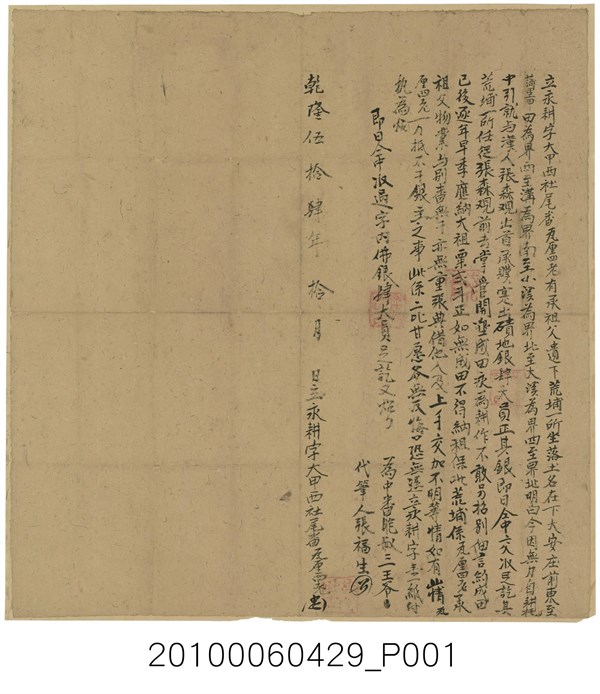 立永耕字大甲西社尾番瓦厘四老有承祖父遺下荒埔一所坐落土名在下大安庄前東至
蒲氏田為界西至溝為界南至小溪為界北至大溪為界四至界址明白今因無力自耕托
中引就与漢人張森观出首承贌實出磧地銀肆大員正其銀即日仝中交收足訖其
荒埔一所任從張森观前去掌管開墾成田永為耕作不敢另招別佃言約成田
已後逐年早季應納大祖粟弍斗正如無成田不得納租保此荒埔係瓦厘四老承
祖父物業与別番無干亦無重張典借他人及上手交加不明等情如有此情瓦
厘四老一力抵不干銀主之事此係二比甘愿各無反悔口恐無憑立永耕字壹紙付
執為炤
即日仝中收過字內佛銀肆大員足訖又炤
為中番
代筆人張福生
乾隆伍拾肆年拾月 日立永耕字大甲西社尾番瓦厘四老
20100060429_P001